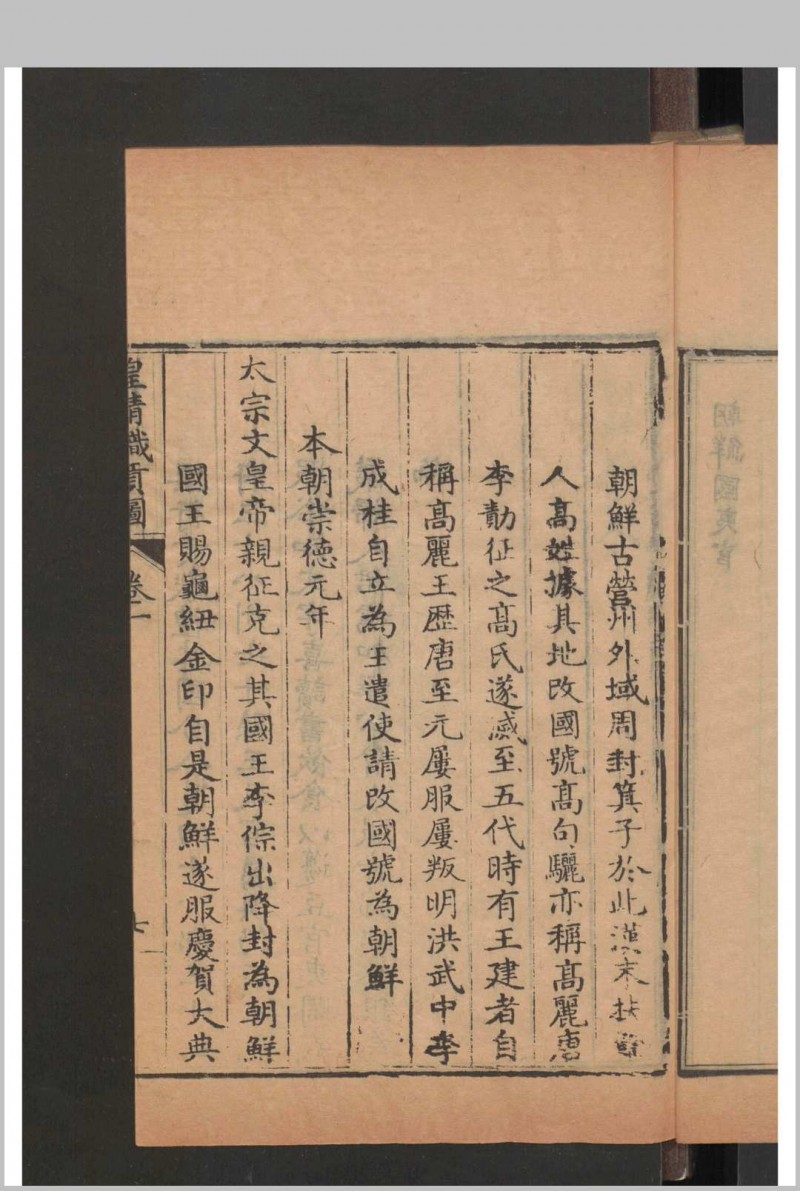 朝鮮國夷官
朝鮮古營州外域周封箕子於此漢末扶餘
人高姓據其地改國號高句驪亦稱高麗唐
李勣征之高氏遂滅至五代時有王建者自
稱高麗王歷唐至元屢服屢叛明洪武中李
成桂自立為王遣使請改國號為朝鮮
本朝崇德元年
太宗文皇帝親征克之其國王李倧出降封為朝鮮
國王賜龜紐金印自是朝鮮遂服慶賀大典
皇清職貢圖 卷一 七